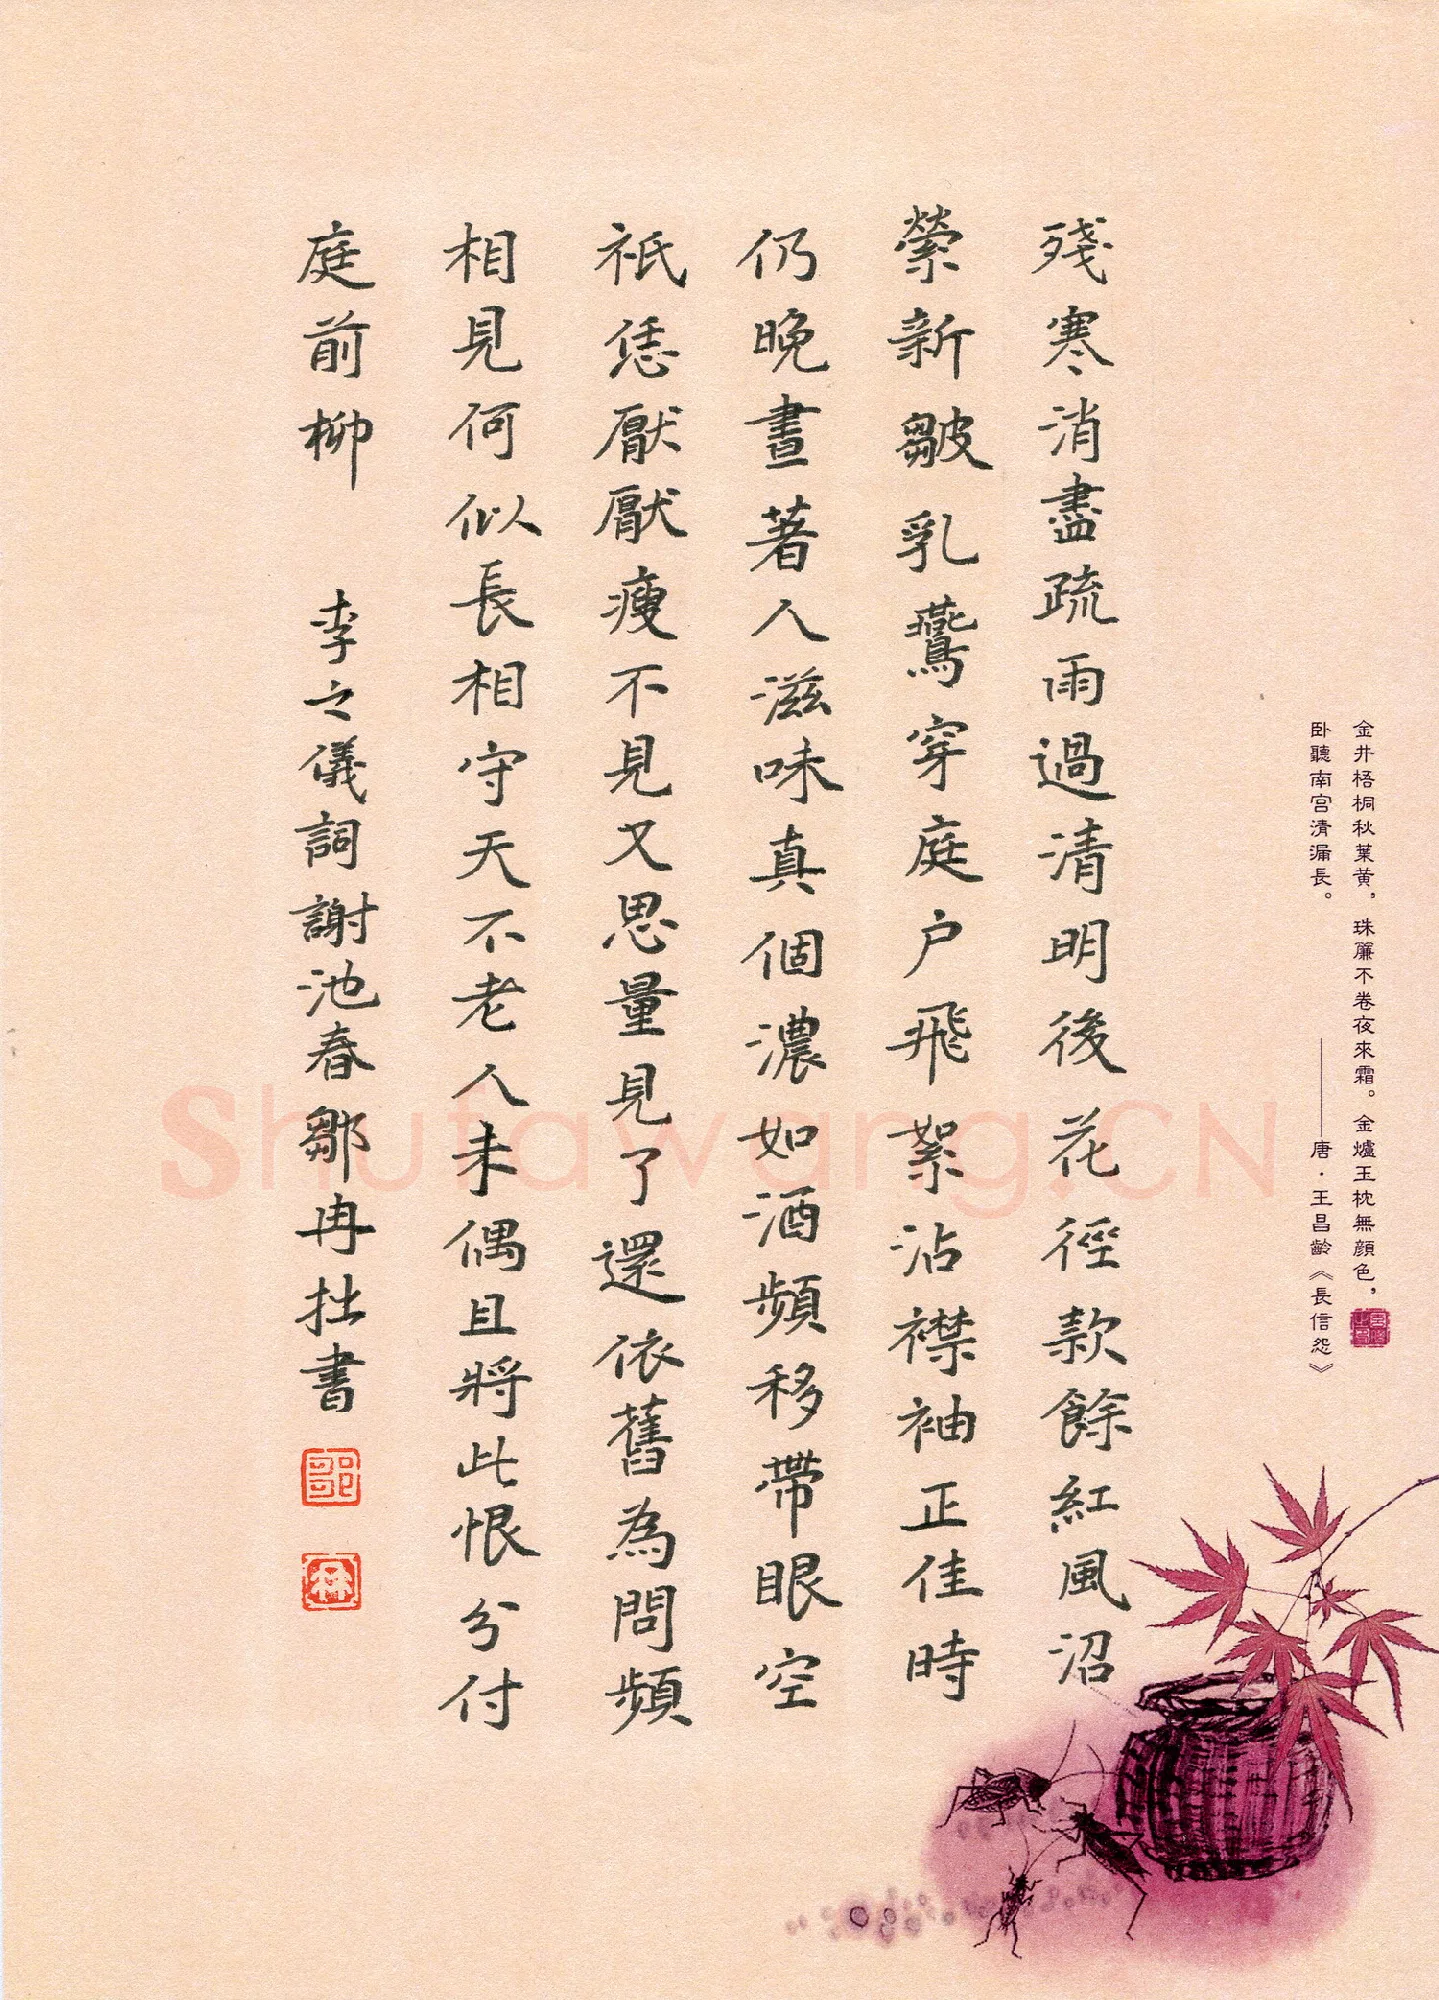 殘寒消盡疏雨過清明後花徑款餘紅風沼
縈新皺乳鷰穿庭户飛絮沾襟袖正佳時
仍晚晝著人滋味真個濃如酒頻移帶眼空
祇恁厭厭瘦不見又思量見了還依舊為問頻
相見何似長相守天不老人未偶且將此恨分付
庭前柳 李之儀詞謝池春鄒冉拙書
金井梧桐秋葉黃，珠簾不卷夜來霜。金爐玉枕無顔色，
卧聽南宫清漏長。
——唐·王昌齡《長信怨》
Shufawang.CN